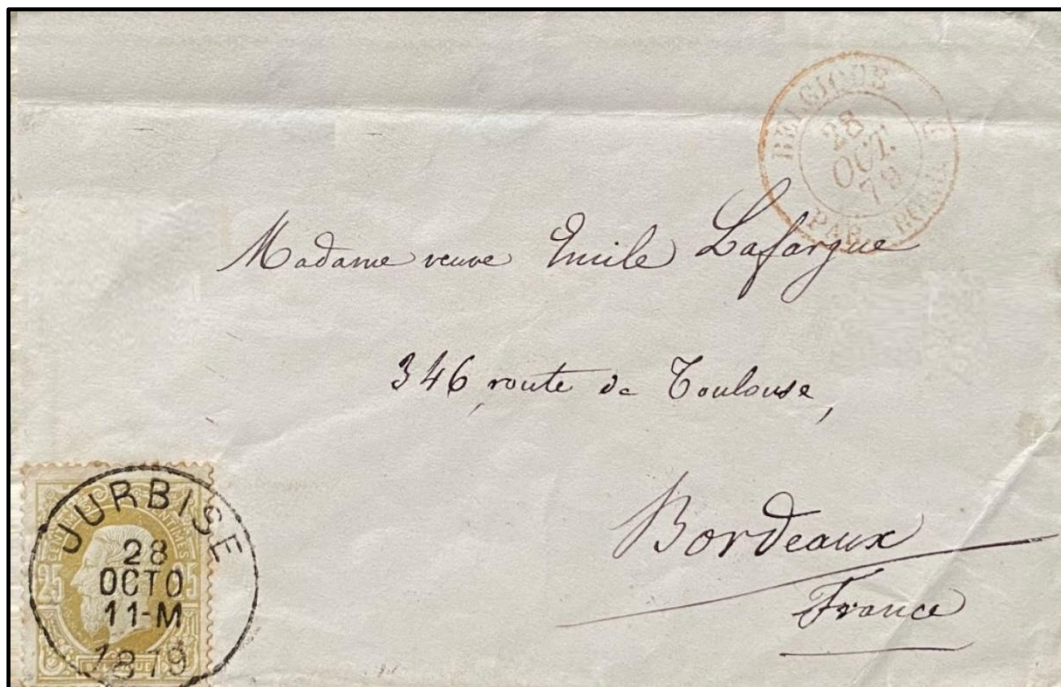 BELGIQUE
28
OCT.
79
PAR
Madame veuve Emile Lafargue
346, route de Toulouse,
Bordeaux
France
JURBISE
28
OCTO
11-M
1879
25